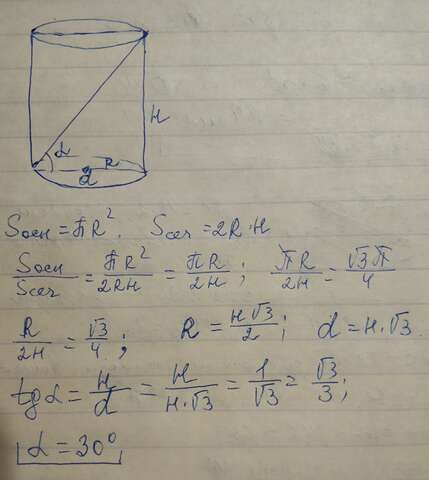 H
α
R
d
Sосн = πR². Sсеч = 2R·H
Sосн/Sсеч = πR²/2RH = πR/2H; πR/2H = √3π/4
R/2H = √3/4; R = H√3/2; d = H·√3.
tgα = H/d = H/H·√3 = 1/√3 = √3/3;
α = 30°